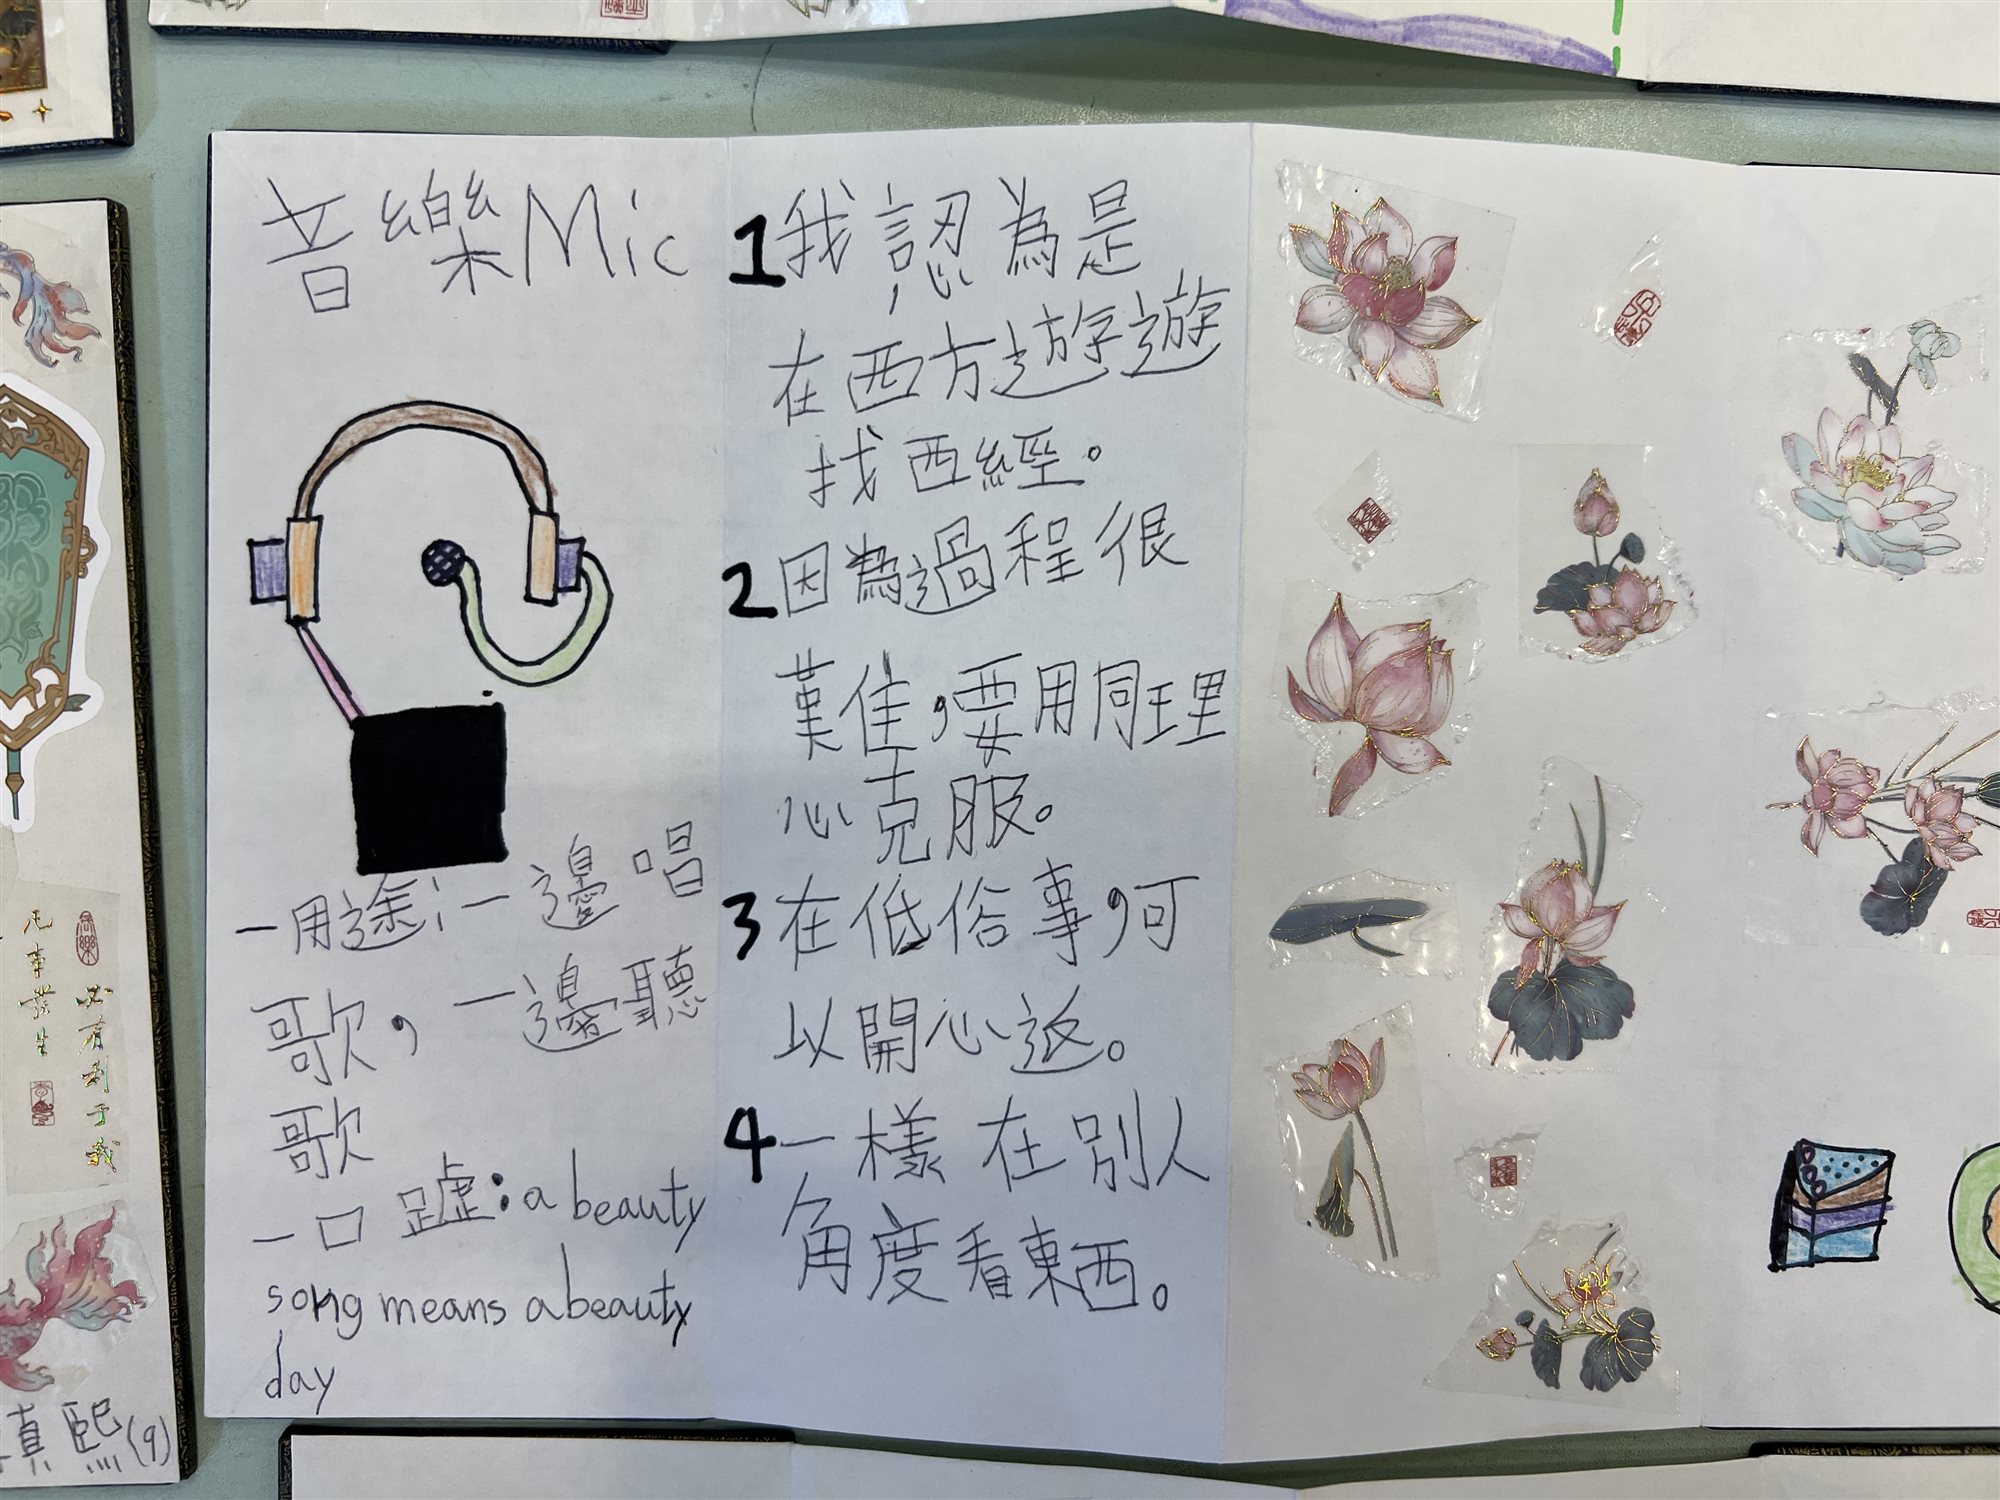 音樂Mic
一用途:一邊唱
歌,一邊聽
歌
一口號:a beauty
song means a beauty
day
1我認為是
在西方遊遊
找西經。
2因為過程很
難佳,要用同理
心克服。
3在低俗事,可
以開心返。
4一樣在別人
角度看東西。
凡事發生
必有利于我
熙(9)